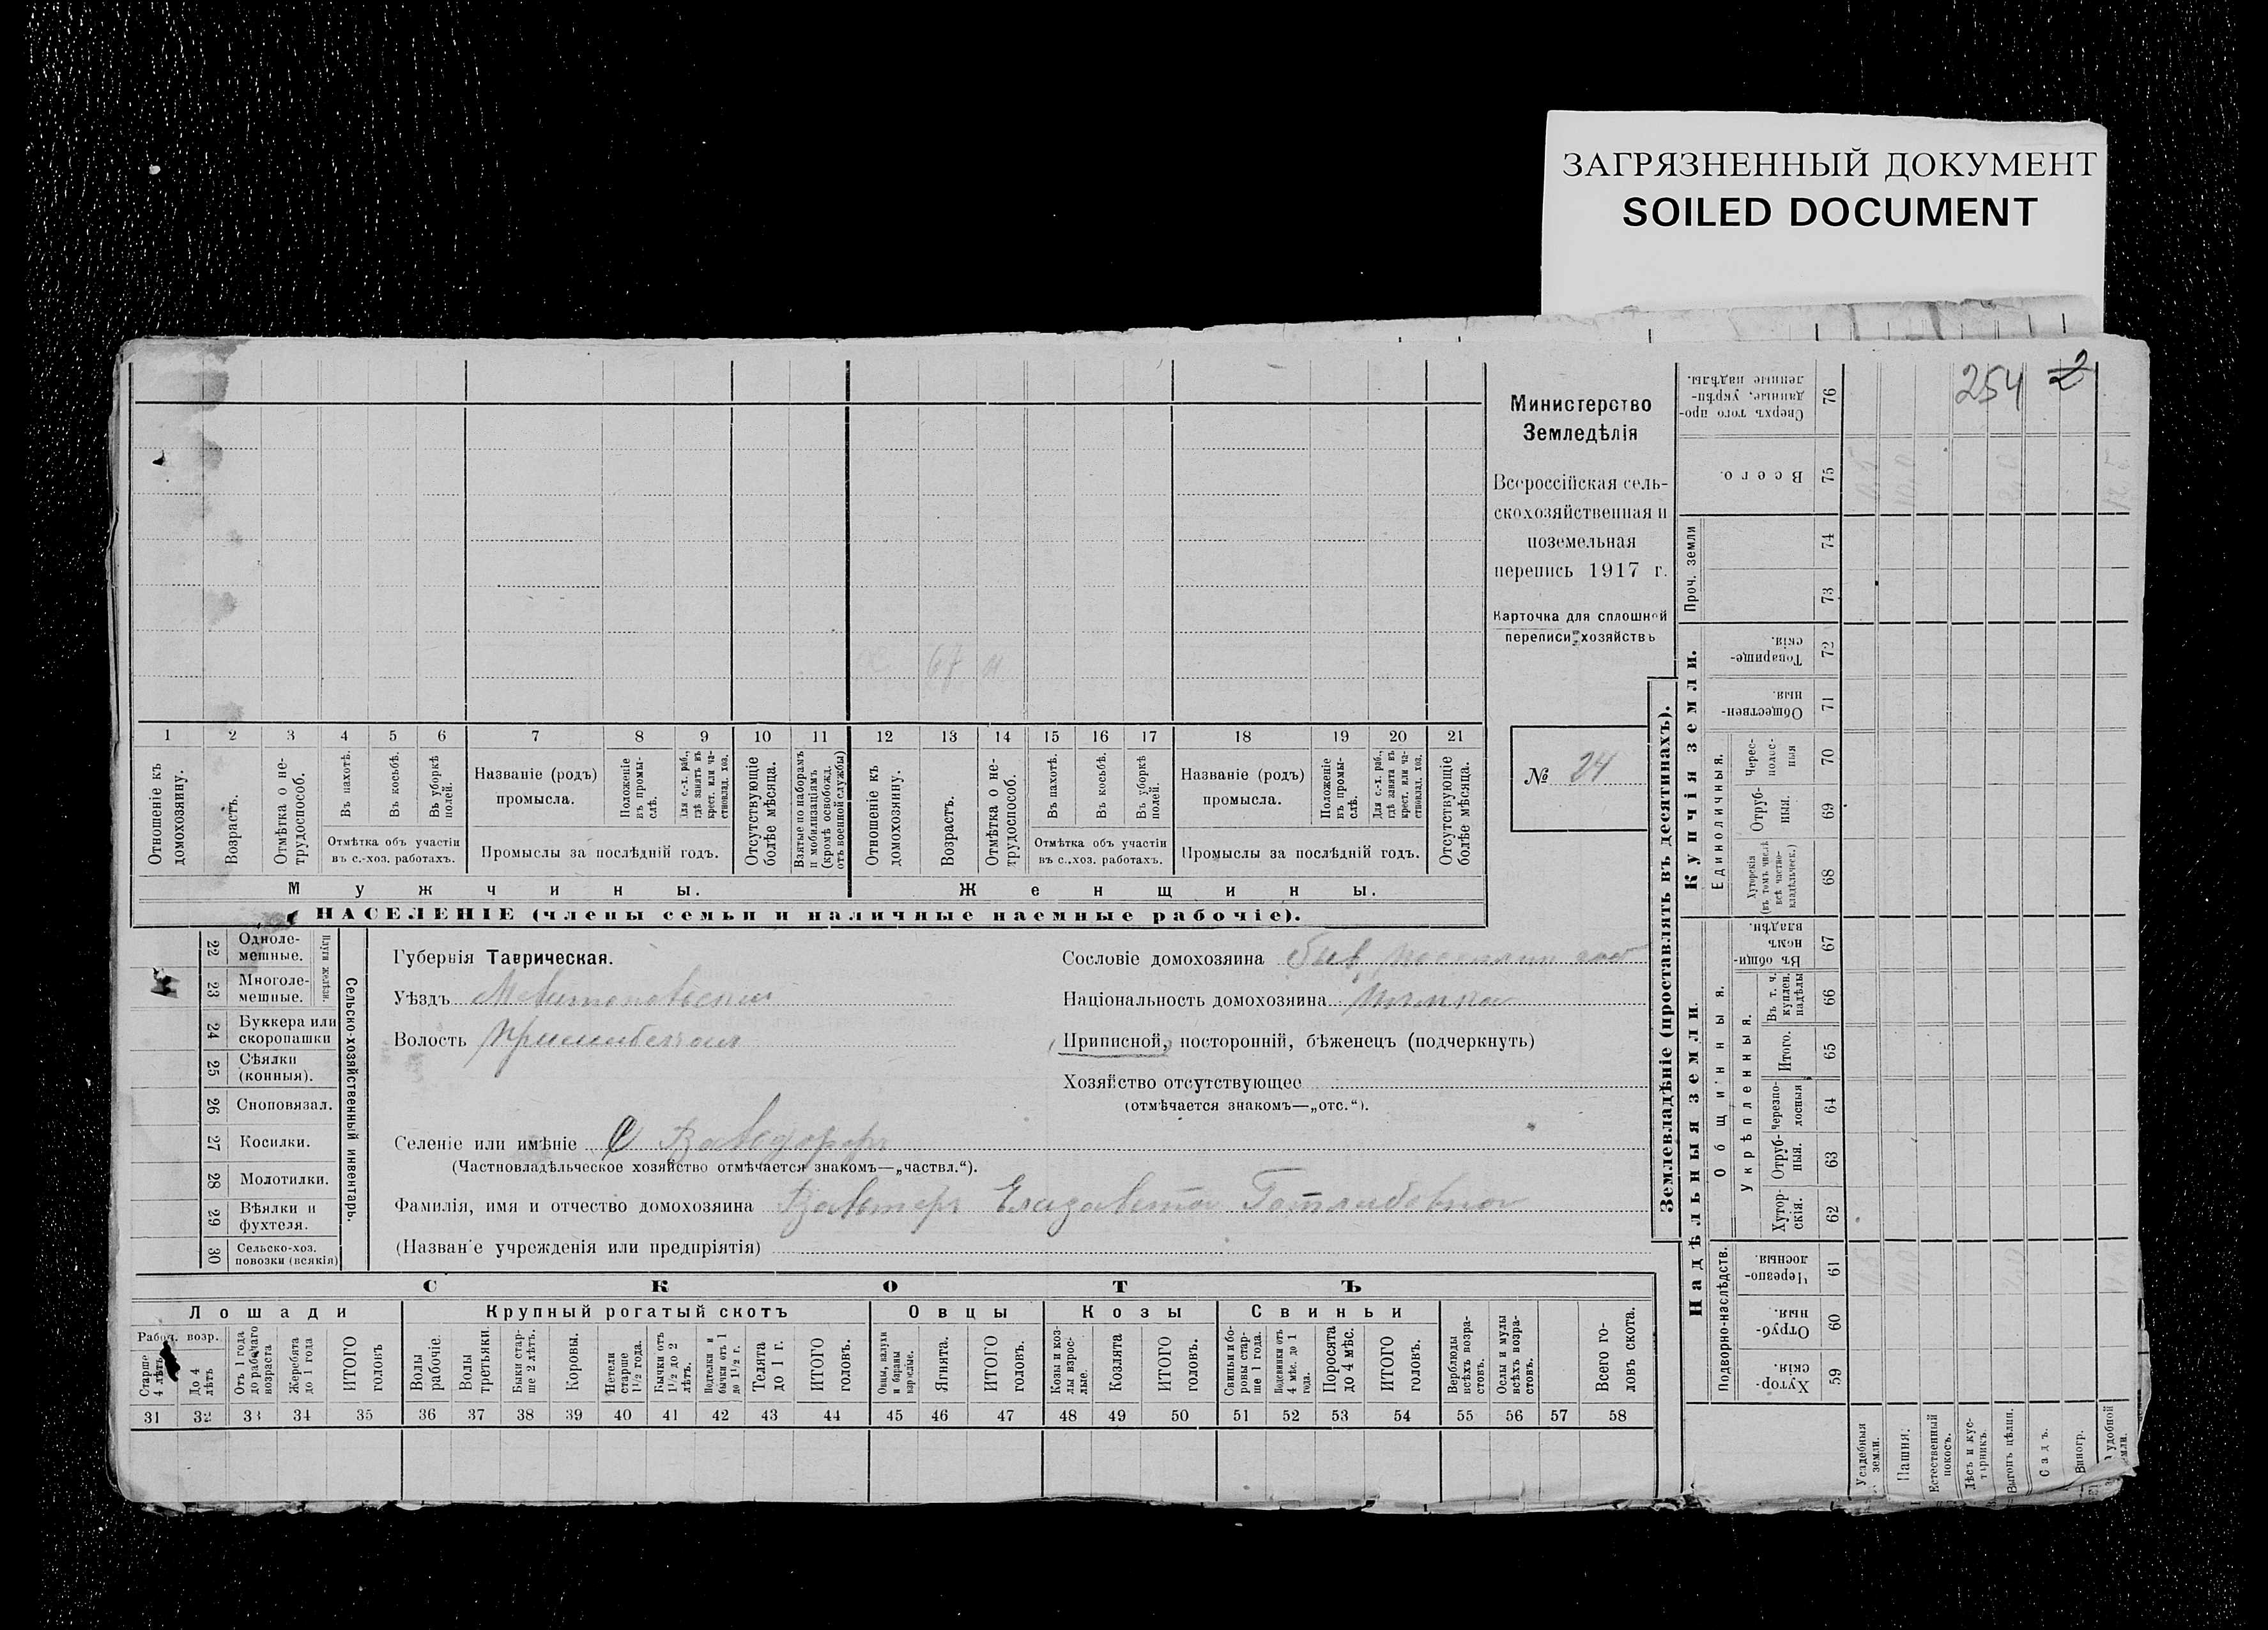 ЗАГРЯЗНЕННЫЙ ДОКУМЕНТ
SOILED DOCUMENT
254 2
Министерство
Земледѣлія
Всероссійская сель-
скохозяйственная и
поземельная
перепись 1917 г.
Карточка для сплошной
переписи хозяйствъ
№ 24
67 н
1 2 3 4 5 6 7 8 9 10 11 12 13 14 15 16 17 18 19 20 21
Отношеніе къ домохозяину.
Возрастъ.
Отмѣтка о не-трудоспособ.
Въ пахотѣ.
Въ косьбѣ.
Въ уборкѣ полей.
Отмѣтка объ участіи
въ с.-хоз. работахъ.
Названіе (родъ)
промысла.
Положеніе въ промы-слѣ.
Для с.-х. раб., гдѣ занятъ въ крест. или ча-стновлад. хоз.
Промыслы за послѣдній годъ.
Отсутствующіе болѣе мѣсяца.
Взятые по наборамъ и мобилизаціямъ (кромѣ освобожд. отъ военной службы)
Отношеніе къ домохозяину.
Возрастъ.
Отмѣтка о не-трудоспособ.
Въ пахотѣ.
Въ косьбѣ.
Въ уборкѣ полей.
Отмѣтка объ участіи
въ с.-хоз. работахъ.
Названіе (родъ)
промысла.
Положеніе въ промы-слѣ.
Для с.-х. раб., гдѣ занята въ крест. или ча-стновлад. хоз.
Промыслы за послѣдній годъ.
Отсутствующіе болѣе мѣсяца.
Мужчины.
Женщины.
НАСЕЛЕНІЕ (члены семьи и наличные наемные рабочіе).
22 Одноле-мешные.
23 Многоле-мешные.
Плуги желѣзн.
24 Буккера или скоропашки
25 Сѣялки (конныя).
26 Сноповязал.
27 Косилки.
28 Молотилки.
29 Вѣялки и фухтеля.
30 Сельско-хоз. повозки (всякія)
Сельско-хозяйственный инвентарь.
Губернія Таврическая.
Уѣздъ Мелитопольскій
Волость Пришибская
Сословіе домохозяина быв. поселянин соб
Національность домохозяина Немка
Приписной, посторонній, бѣженецъ (подчеркнуть)
Хозяйство отсутствующее
(отмѣчается знакомъ—„отс.“).
Селеніе или имѣніе С Вальдорф
(Частновладѣльческое хозяйство отмѣчается знакомъ—„частвл.“).
Фамилія, имя и отчество домохозяина Вальтеръ Елизавета Готлибовна
(Названіе учрежденія или предпріятія)
СКОТЪ
Лошади
Крупный рогатый скотъ
Овцы
Козы
Свиньи
Рабоч. возр.
Старше 4 лѣтъ
До 4 лѣтъ
Отъ 1 года до рабочаго возраста
Жеребята до 1 года
ИТОГО головъ
Волы рабочіе.
Волы третьяки.
Быки стар-ше 2 лѣтъ.
Коровы.
Нетели старше 1 1/2 года.
Бычки отъ 1 1/2 до 2 лѣтъ.
Подтелки и бычки отъ 1 до 1 1/2 г.
Телята до 1 г.
ИТОГО головъ.
Овцы, валухи и бараны взрослые.
Ягнята.
ИТОГО головъ.
Козы и коз-лы взрос-лые.
Козлята
ИТОГО головъ.
Свиньи и бо-ровы стар-ше 1 года.
Подсвинки отъ 4 мѣс. до 1 года.
Поросята до 4 мѣс.
ИТОГО головъ.
Верблюды всѣхъ возра-стовъ.
Ослы и мулы всѣхъ возра-стовъ.
Всего го-ловъ скота.
31 32 33 34 35 36 37 38 39 40 41 42 43 44 45 46 47 48 49 50 51 52 53 54 55 56 57 58
Землевладѣніе (проставлять въ десятинахъ).
Надѣльныя земли.
Купчія земли.
Проч. земли
Подворно-наслѣдств.
Общинныя.
Укрѣпленныя.
Единоличныя.
Хутор-скія. 59
Отруб-ныя. 60
Черезпо-лосныя. 61
Хутор-скія. 62
Отруб-ныя. 63
Черезпо-лосныя 64
Итого. 65
Въ т. ч. куплен. надѣлы 66
Въ общи-номъ владѣн. 67
Хуторскія (въ томъ числѣ всѣ частно-владѣльческ.) 68
Отруб-ныя. 69
Черес-полос-ныя 70
Обществен-ныя. 71
Товарище-скія. 72
73
74
Всего. 75
Сверхъ того про-данные, укрѣп-ленные надѣлы. 76
Усадебныя земли.
Пашня.
Естественный покосъ.
Лѣсъ и кус-тарникъ.
Выгонъ цѣлин.
Садъ.
Виногр.